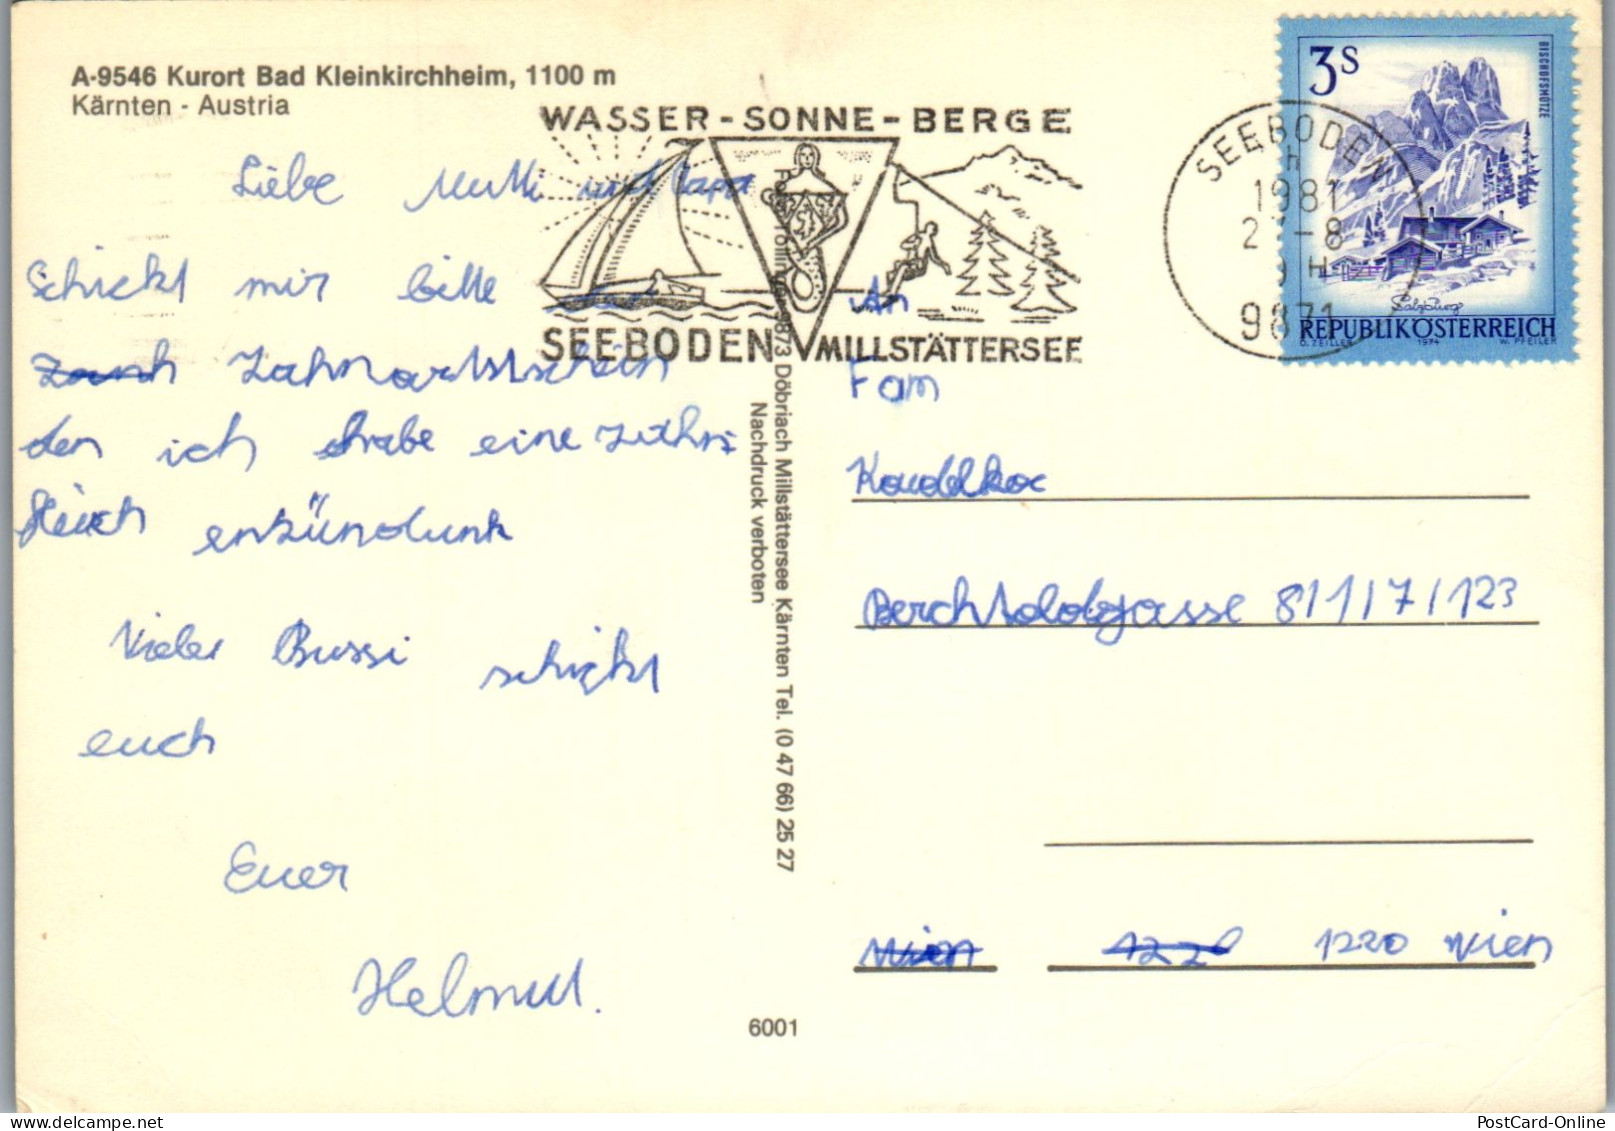 A-9546 Kurort Bad Kleinkirchheim, 1100 m
Kärnten - Austria
Liebe Mutti und Papa
Schickt mir bitte
Zanch Zahnartstschein
den ich habe eine Zathn
fleich entzündunk
Viele Bussi schickt
euch
Euer
Helmut.
WASSER-SONNE-BERGE
SEEBODEN MILLSTÄTTERSEE
9873 Döbriach Millstättersee Kärnten Tel. (0 47 66) 25 27
Nachdruck verboten
6001
SEEBODEN
1981
-8
9871
3S
BISCHOFSMÜTZE
Salzburg
REPUBLIK ÖSTERREICH
O. ZEILLER 1974 W. PFEILER
An
Fam
Koudelka
Berchtoldgasse 8/1/7/123
Wien 122 1220 Wien
PostCard-Online